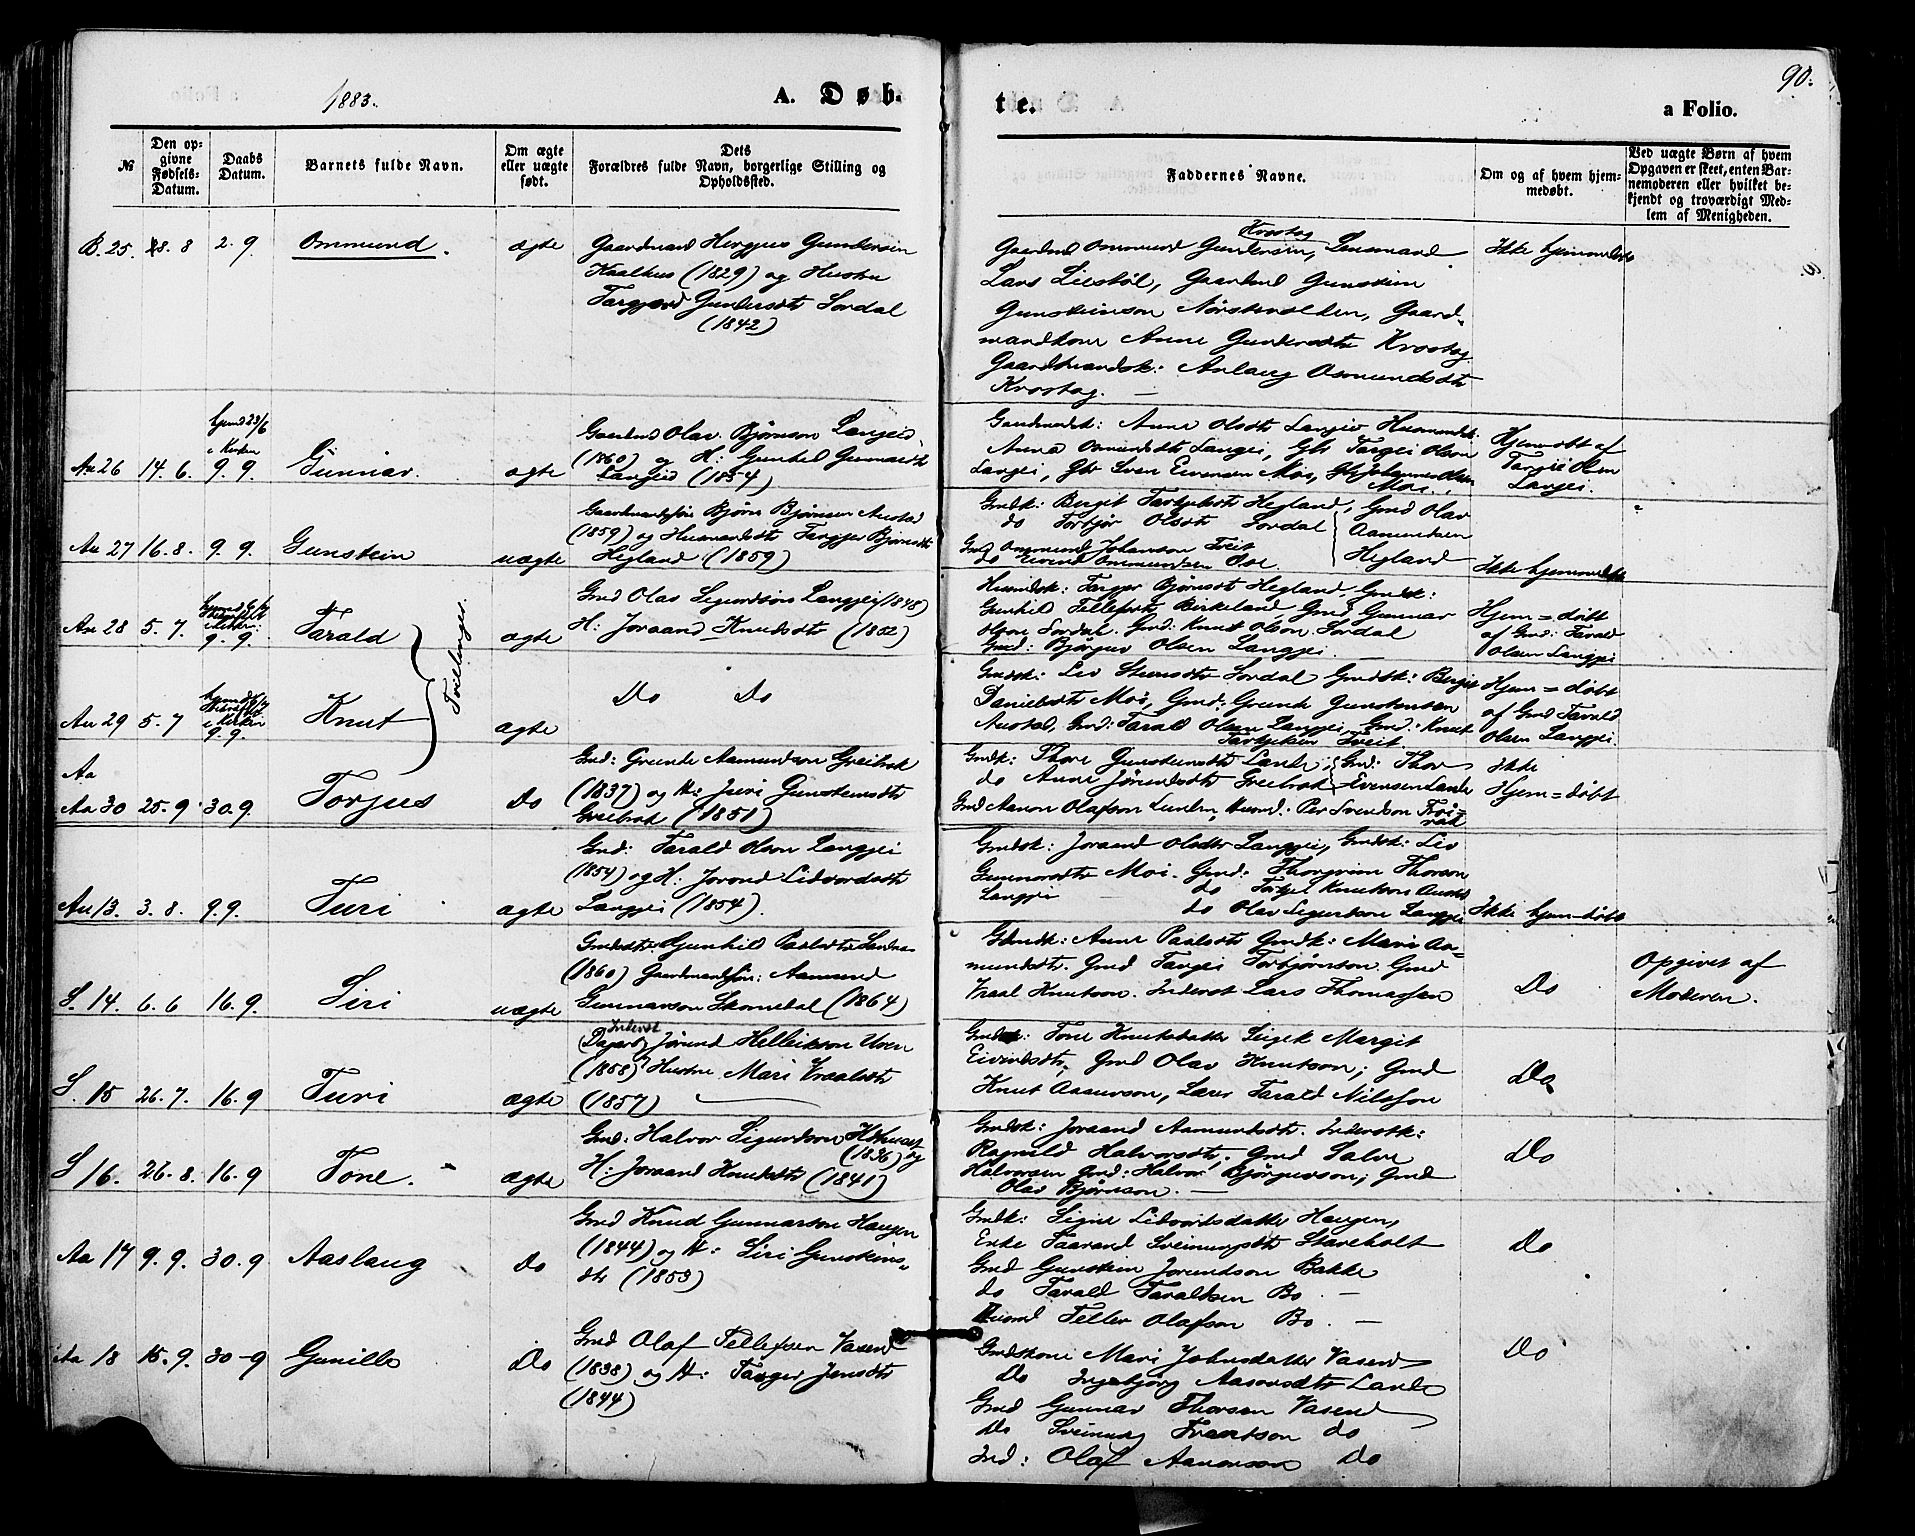 1883.
A. Døb-
te.
a Folio.
90.
№
Den op-
givne
Fødsels-
Datum.
Daabs
Datum.
Barnets fulde Navn.
Om ægte
eller uægte
født.
Dets
Forældres fulde Navn, borgerlige Stilling og
Opholdssted.
Faddernes Navne.
Om og af hvem hjem-
medøbt.
Ved uægte Børn af hvem
Opgaven er skeet, enten Bar-
nemoderen eller hvilket be-
kjendt og troværdigt Med-
lem af Menigheden.
B. 25. 28. 8 2. 9 Ommund. ægte
Gaardmand Hergjus Gundersen
Kaalhus (1829) og Hustru
Targjærd Gundersdtr Sordal
(1842)
Krostøg
Gaardmd Ommund Gundersen, Lensmand
Lars Liestöl, Gaardmd Gunstein
Gunsteinson Nørstevolden, Gaard-
mandkone Anne Gundersdtr Krostøg
Gaardmandsk: Aslaug Osmundsdtr
Krostøg. —
Ikke hjemmedøbt
Au 26 14. 6. 9. 9. Gunnar. ægte
hjemd 23/6
i Kirken
Gaardmd Olav Bjørnson Langeid
(1860) og H. Gunhil Gunnarsdtr
Langeid (1854)
Gaardmdsk: Anne Olsdtr Langeiv Husmandsk:
Anna Osmundsdtr Langei, Gbr Targei Olsen
Langei, Gbr Sven Evensen Moi, Gbr Johannes Olsen
Moi.
Hjemdøbt af
Targei Olsen
Langei.
Au 27 16. 8. 9. 9. Gunstein uægte
Gaardmandssøn Bjørn Bjørnsen Austad
(1859) og Husmandsdtr Targjer Bjørnsdtr
Hegland (1859)
Gmdk: Bergit Tarkjelsdtr Hegland, Gmd Olav
do Torbjør Olsdtr Sordal Aamundsen
Gmd Ommund Johanson Tveit Hegland
do Eivind Ommundsen Ose.
Ikke hjemmedøbt
Au 28 5. 7. 9. 9. Tarald ægte
Tvilinger.
Gmd Olav Sigurdson Langjei (1848)
H: Joraand Knudsdtr (1852)
Husmdsk: Targjer Bjørnsdt Hegland, Gmdsk:
Gunhild Tellefsdtr Birkeland, Gmd Gunnar
Olson Sordal. Gmd: Knut Olson Sordal
Gmd: Bjørguv Olsen Langjei. —
Hjem = døbt
af Gmd: Tarald
Olsen Langjei
Au 29 5. 7 9. 9. Knut ægte
i Kirken
Do Do
Gmdsk: Liv Stensdtr Sordal Gmdsk: Bergit
Danielsdtr Moi, Gmd: Grunde Gunstensen
Austad, Gmd: Tarald Olsen Langjei Gmd: Knut
Tarkjelsen Tveit.
Hjem = døbt
af Gmd Tarald
Olsen Langjei.
Aa
Aa 30 25. 9. 30. 9. Torjus Do
Gmd: Grunde Aamundson Greibrok
(1837) og H: Juri Gunsteinsdtr
Greibrok (1851)
Gmdk: Thore Gunsteinsdtr Lande Gmd: Thor
do Anne Jørundsdtr Greibrok Evensen Lande
Gmd Aanon Olafson Lunden, Husmd: Per Svendson Trøi-
Ikke
Hjem = døbt
Au 13. 3. 8. 9. 9. Turi ægte
Gmd: Tarald Olson Langjei
(1854) og H: Jorond Lidvordsdtr
Langjei (1854).
Gmdsk: Joraand Olsdtr Langjei, Gmdsk: Liv
Gunnarsdtr Moi. Gmd: Thorgrim Thorson
Langjei — do Torkjel Knutson Austad
do Olav Sigurdson Langjei
Ikke hjemdøbt
S. 14. 6. 6 16. 9. Siri uægte
Gmdsdtr: Gunhild Paalsdtr
(1860) Gaardmandssøn: Aamund
Gunnarson Skomedal (1864)
Gmdsk: Anne Paalsdtr Gmdk: Mari Aa-
mundsdtr. Gmd Targei Torbjørnson. Gmd
Vraal Knutson. Inderst Lars Thomassen
Do
Opgivet af
Moderen.
S. 15 26. 7. 16. 9 Turi ægte
Inderst
Jørund Helleikson Uven
(1858) Hustru Mari Vraalsdtr
(1857) —
Gmdsk: Tone Knutsdatter Pigek Margit
Eivindsdtr, Gmd Olav Knutson; Gmd
Knut Aanonson, Lærer Tarald Nilsson
Do
S 16. 26. 8. 16. 9 Tone. ægte
Gmd: Halvor Sigurdson
(1836) og
H: Joraand Knudsdtr (1841)
Gmdsk: Joraand Aamundsdtr. Inderstk:
Ragnild Halvorsdtr, Gmd Salve
Halvorsen Gmd: Halvor Bjørgusson; Gmd
Olav Bjørnson. —
Do
Aa 17 9. 9. 30. 9 Aaslaug do
Gmd Knud Gunnarson Haugen
(1844) og H: Siri Gunsteins-
dtr (1853)
Gmdk: Signe Lidvordsdatter Haugen,
Enke Taarand Sveinungsdtr Stareholt
Gmd Gunstein Jorundson Bakke
do Tarald Taraldsen Bo. —
Husmd Tellev Olafson Bo. —
Do
Aa 18 15. 9. 30-9 Gunille Do
Gmd Olaf Tellefsen Vasend
(1838) og H: Targer Jensdtr
(1844)
Gmdskone Mari Johnsdatter Vasend
Do Ingebjørg Aasmndsdtr Lande
Gmd Gunnar Thorsen Vasend
Do Sveinung Frantson do
Ind: Olaf Aanonson Do
Do